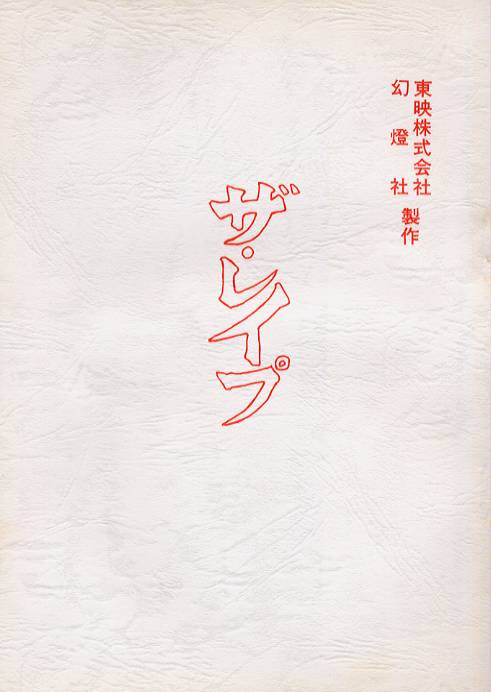 東映株式会社
幻燈社
製作
ザ・レイプ